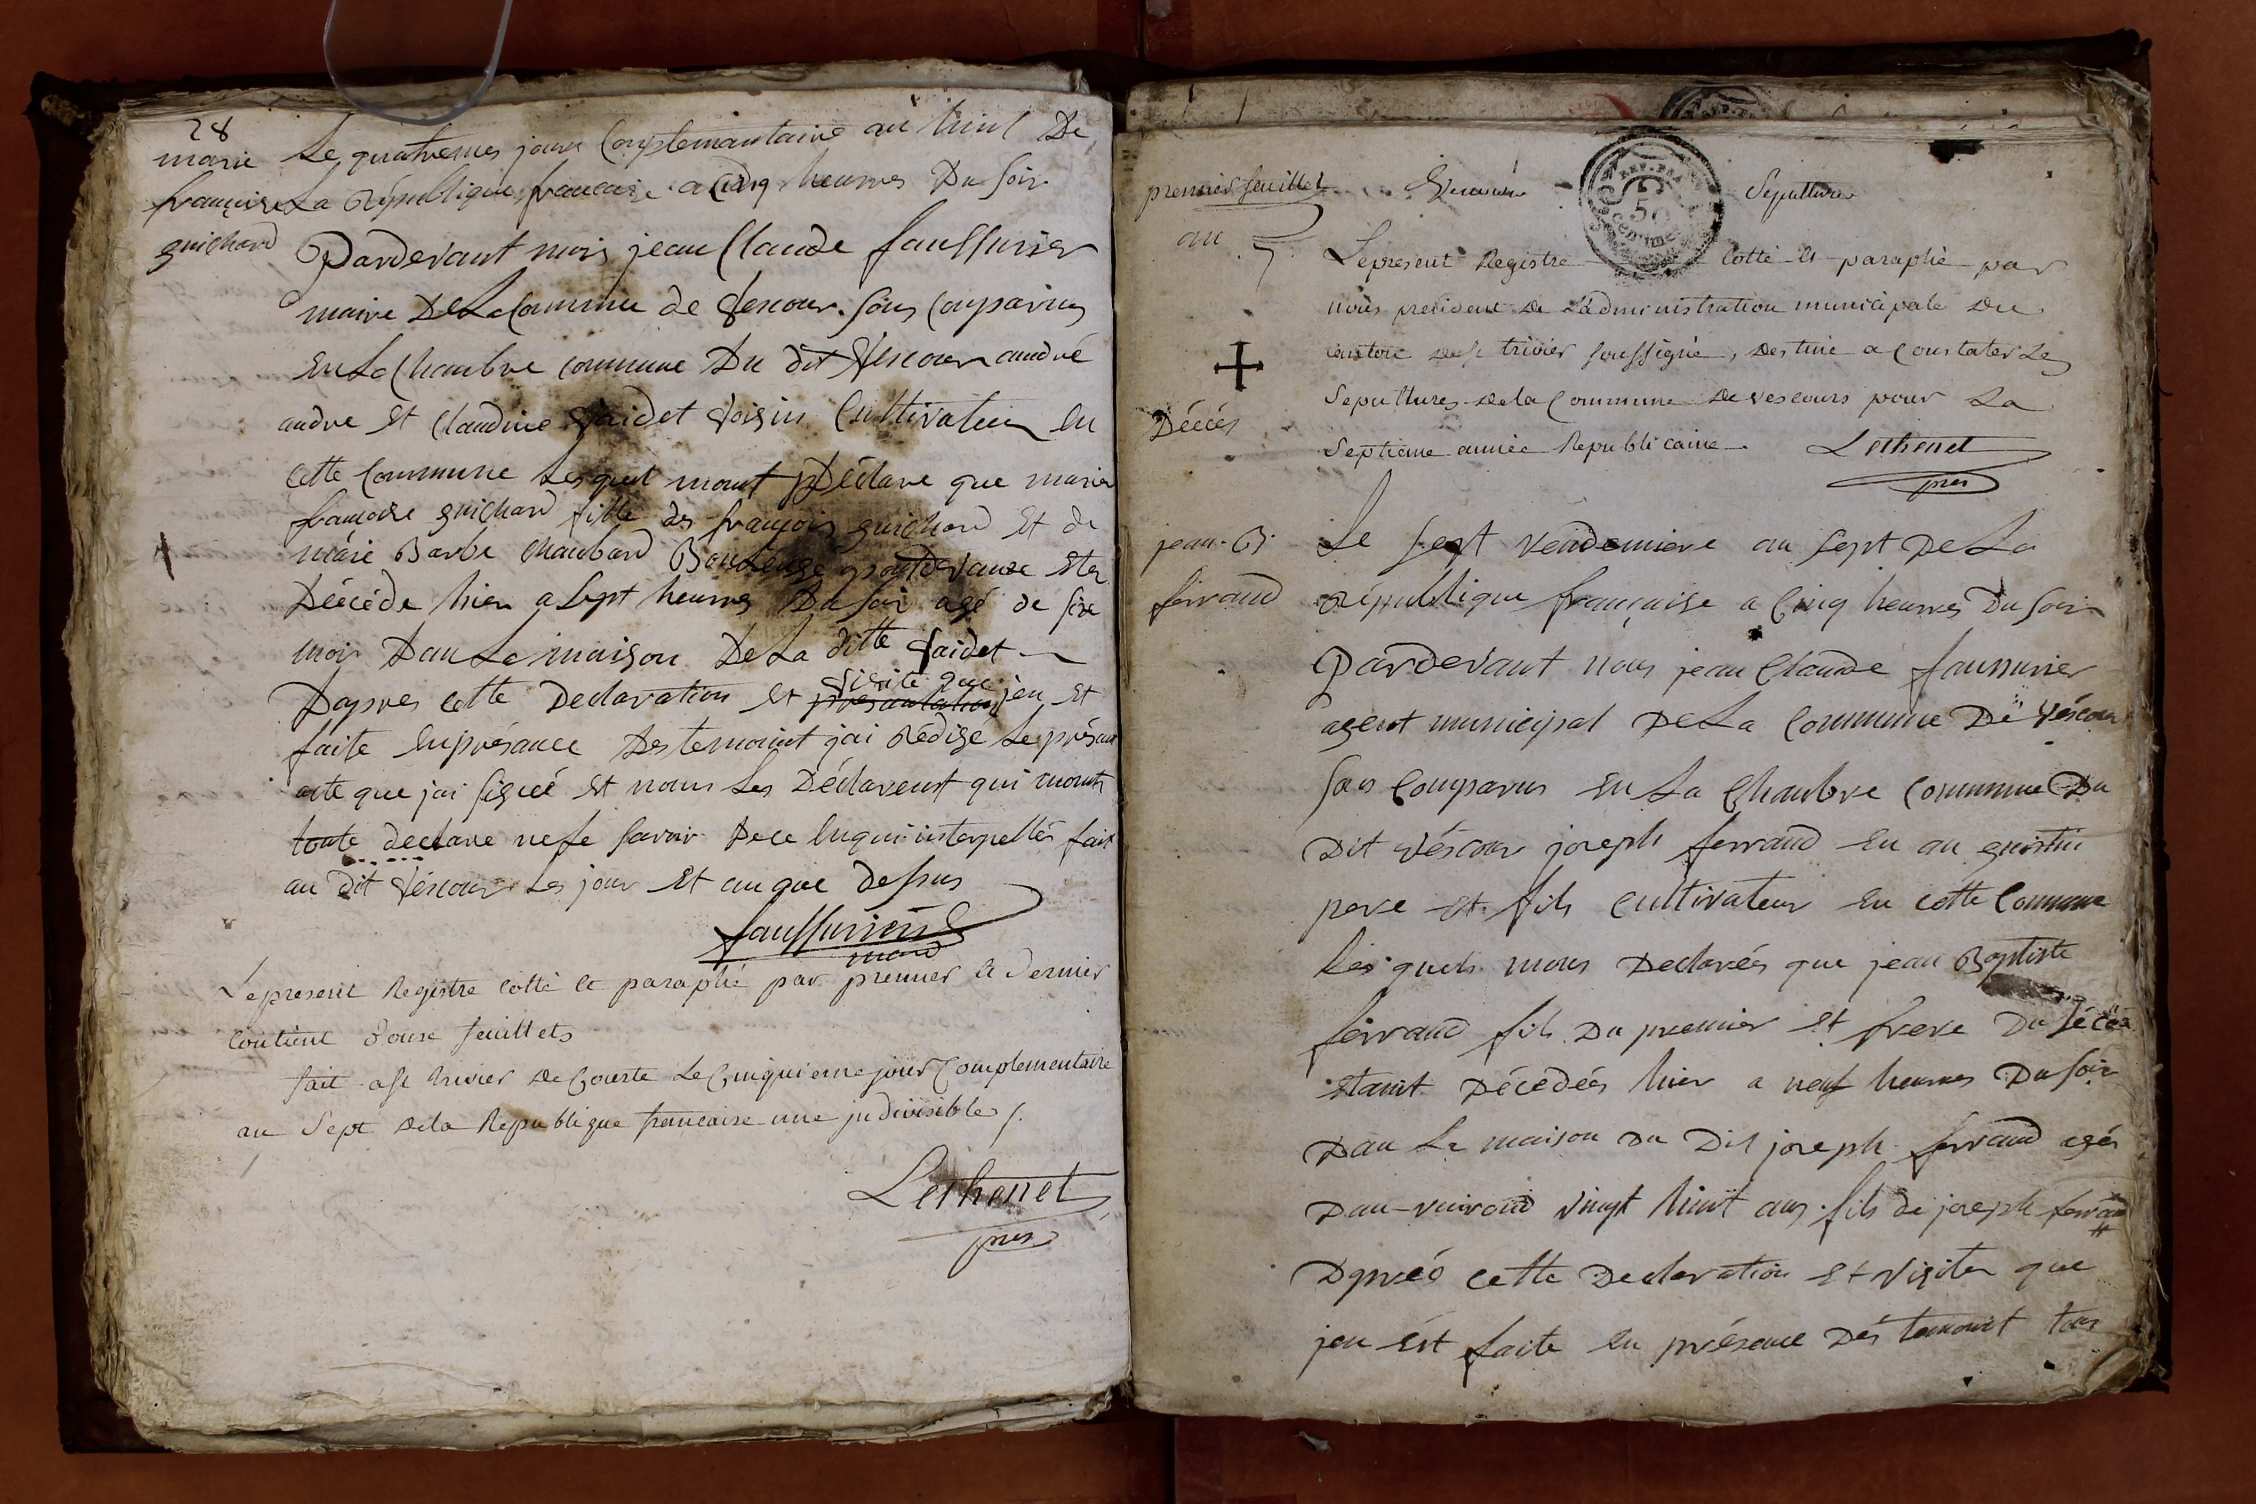 28
marie
françoise
guichard
Le quatriemes jours Complemantaire an huit De
La République francaise a Cinq heures Du Soir
Pardevant nous jean Claude faussurier
maire De La Commune de Vescour. Sons Comparus
En La Chambre commune Du dit Vescour andré
andre Et Claudine Vaidet Voisin Cultivateur En
cette Commune Lesquel mont Déclare que marie
françoise guichard fille des françois guichard Et de
marie Barbe Chambard pontdevause Et
Décéde hier a Sept heures Du Soir agé de six
mois Dan La maison De La ditte Vaidet
Dapres cette Declaration Et presantation visite que jen Et
faite En présance Des temoint jai Rédige Le présan
acte que jai Signé Et nous Les Déclarent qui mont
toute declare ne Se Savoir De ce Enquis interpellés fait
au dit Vescour Les jour Et an que dessus
faussurier
maire
Le present Registre cotté et paraphé par premier et dernier
Contient douse feuillets
fait a St trivier de Courte Le Cinquieme jour Complementaire
an Sept de la Republique francaise une indivisible /.
Lethenet
pres
premier feuillet
an 7
Décés
jean. B.
ferrand
REP. FRA
50
Centimes
Sepultures
Le present Registre cotté et paraphé par
nous president de L'administration municipale du
canton de St trivier soussigné, destiné a Constater Les
Sepultures de la Commune de vescours pour La
Septieme année Republicaine
Lethenet
pres
Le Sept Véndemiere an Sept De La
République française a Cinq heures Du Soir
Pardevant nous jean Claude faussurier
agent municipal De La Commune De Véscour
Son Comparus En La Chambre Commune Du
Dit Véscour joseph ferrand
pere Et fils Cultivateur En cette Commune
Les quels mous Declarées que jean Baptiste
ferrand fils Du premier Et frere Du
Etant Décédées hier a neuf heures Du Soir
Dan La maison Du Dit joseph ferrand agés
Dan-viirond vingt huit ans fils de joseph ferrand
Dpres cette Declaration Et Visiter que
jen Ést faite En présence Dés temoint tous